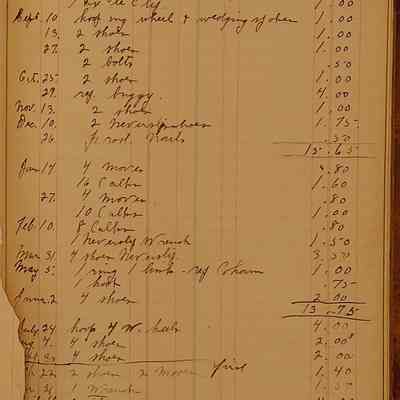 1.00
Sept. 10 hoop ing wheel & wedging spokes 1.00
13. 2 shoes 1.00
27. 2 shoes 1.00
2 bolts .50
Oct. 25 2 shoes 1.00
29. rep. buggy. 4.00
Nov. 13. 2 shoes 1.00
Dec. 10. 2 Neverslip shoes 1.75
26 frost Nails .50
15.65
Jan 14 4 moves .80
16 Calks 1.60
27. 4 moves .80
10 Calks 1.00
Feb. 10. 8 Calks .80
1 Neverslip Wrench 1.50
Mar 31. 4 shoes Neverslip. 3.50
May 5. 1 ring 1 link - rep Chain 1.00
1 hook .75
June. 2 4 shoes 2.00
13.75
July 24 hoop 4 W. heels 4.00
4. 4 shoes 2.00
4 shoes 2.00
22 2 shoes 2 moves 1.40
26 1 Wrench